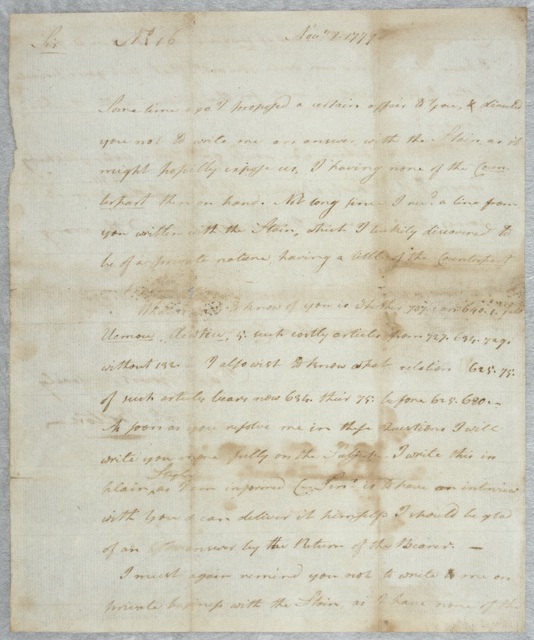 Sir No. 16 Novr 1. 1779
Some time ago I proposed a certain affair to You, & directed
you not to write me an answer with the Stain, as it
might possibly expose us, I having none of the Coun-
terpart then on hand. Not long since I recd a line from
you written with the Stain, which I luckily discovered to
be of a private nature having a little of the Counterpart
to know of you is whether 707. can 640. 1.
Uemou 5. such costly articles from 727. 634. 729.
without 132. I also wish to know what relation 625. 75.
of such articles bears now 634. their 75. before 625. 680. -
As soon as you resolve me in these Questions I will
write you more fully on the Subject. I write this in
Style
plain as I am informed is to have an interview
with You & can deliver it himself. I should be glad
of an answer by the Return of the Bearer. -
I must again remind you not to write to me on
private business with the Stain, as I have none of the